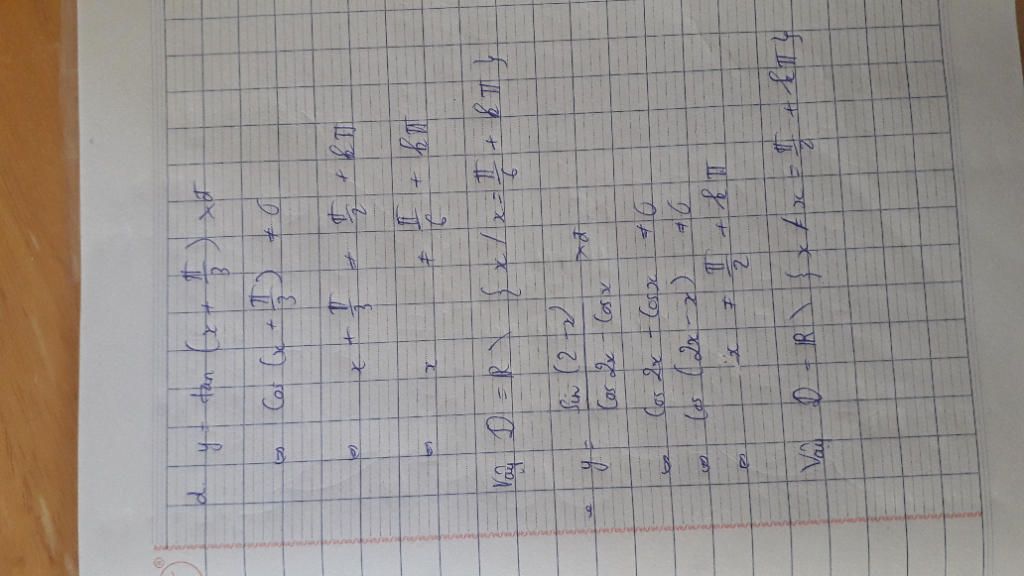 d y = tan (x + π/3) xđ
⇔ cos (x + π/3) ≠ 0
⇔ x + π/3 ≠ π/2 + kπ
⇔ x ≠ π/6 + kπ
Vậy D = R \ { x / x = π/6 + kπ }
e y = sin (2 - x) / cos 2x - cos x xđ
⇔ cos 2x - cos x ≠ 0
⇔ cos (2x - x) ≠ 0
⇔ x ≠ π/2 + kπ
Vậy D = R \ { x / x = π/2 + kπ }